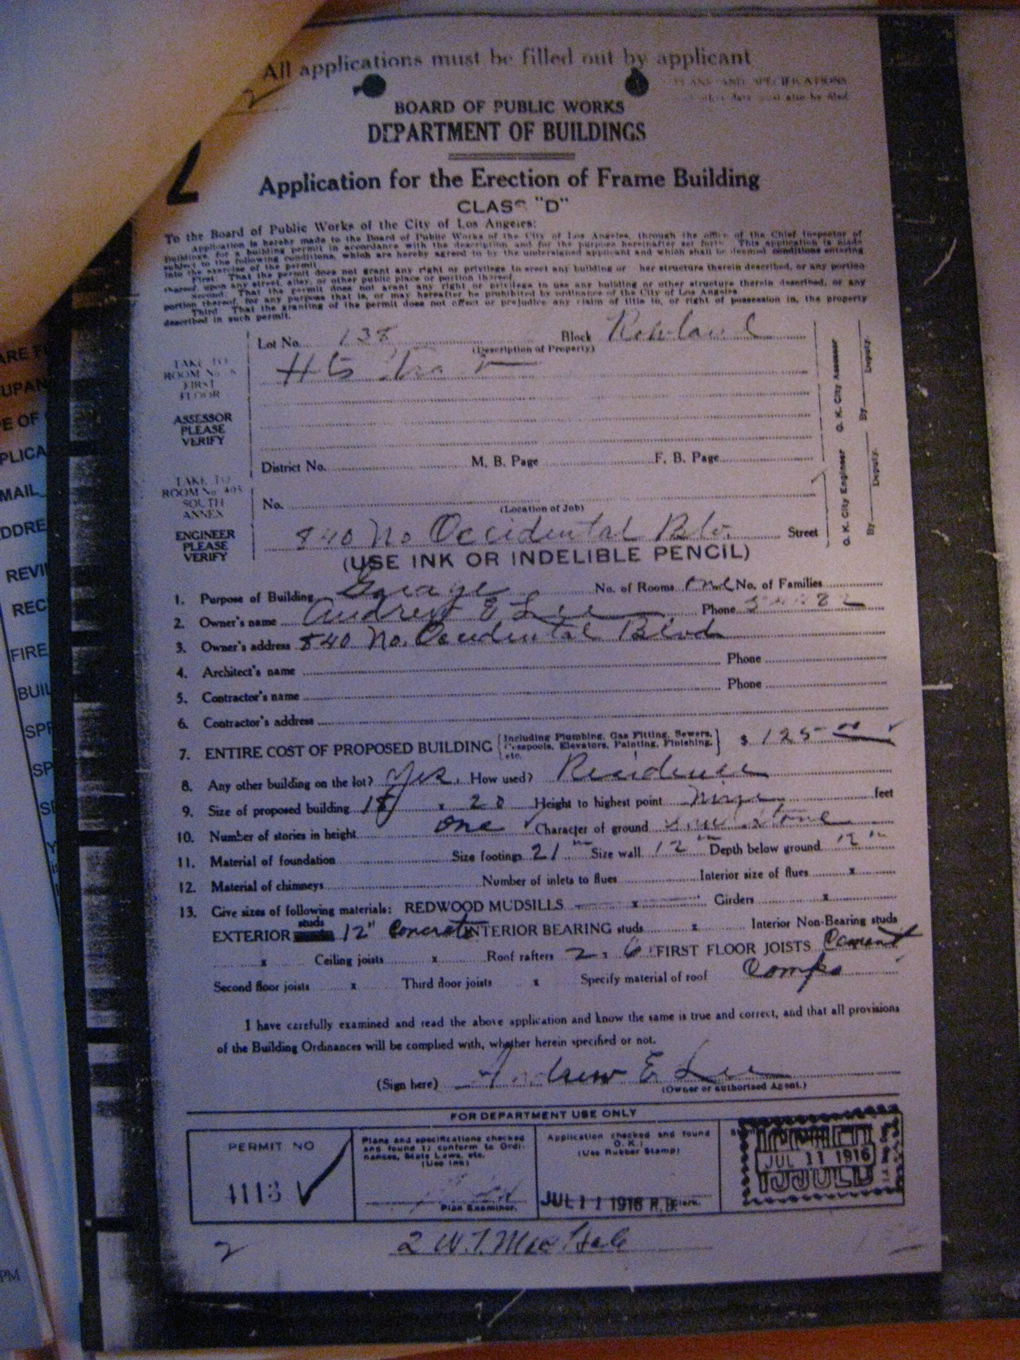 All applications must be filled out by applicant
PLANS AND SPECIFICATIONS
must also be filed
2
BOARD OF PUBLIC WORKS
DEPARTMENT OF BUILDINGS
2
Application for the Erection of Frame Building
CLASS "D"
To the Board of Public Works of the City of Los Angeles:
Application is hereby made to the Board of Public Works of the City of Los Angeles, through the office of the Chief Inspector of
Buildings, for a building permit in accordance with the description and for the purpose hereinafter set forth. This application is made
subject to the following conditions, which are hereby agreed to by the undersigned applicant and which shall be deemed conditions entering
into the exercise of the permit:
First: That the permit does not grant any right or privilege to erect any building or other structure therein described, or any portion
thereof, upon any street, alley, or other public place or portion thereof.
Second: That the permit does not grant any right or privilege to use any building or other structure therein described, or any
portion thereof, for any purpose that is, or may hereafter be prohibited by ordinance of the City of Los Angeles
Third: That the granting of the permit does not affect or prejudice any claim of title to, or right of possession in, the property
described in such permit.
Lot No. 138 Block Rowland
(Description of Property)
TAKE TO
ROOM No. 6
FIRST
FLOOR
Hts Tract
ASSESSOR
PLEASE
VERIFY
O. K. City Assessor
By Deputy.
District No. M. B. Page F. B. Page
TAKE TO
ROOM No. 405
SOUTH
ANNEX
No.
(Location of Job)
ENGINEER
PLEASE
VERIFY
840 No Occidental Blv. Street
O. K. City Engineer
By Deputy.
(USE INK OR INDELIBLE PENCIL)
1. Purpose of Building Garage No. of Rooms one No. of Families
2. Owner's name Andrew E Lee Phone
3. Owner's address 840 No. Occidental Blvd
4. Architect's name Phone
5. Contractor's name Phone
6. Contractor's address
7. ENTIRE COST OF PROPOSED BUILDING {Including Plumbing, Gas Fitting, Sewers, Cesspools, Elevators, Painting, Finishing, etc.} $ 125 00
8. Any other building on the lot? Yes. How used? Residence
9. Size of proposed building 18 x 20 Height to highest point nine feet
10. Number of stories in height one Character of ground
11. Material of foundation Size footings 21 in Size wall 12 in Depth below ground 12 in
12. Material of chimneys Number of inlets to flues Interior size of flues x
13. Give sizes of following materials: REDWOOD MUDSILLS x Girders x
EXTERIOR studs 12" Concrete INTERIOR BEARING studs x Interior Non-Bearing studs
x Ceiling joists x Roof rafters 2 x 6 FIRST FLOOR JOISTS Cement
Second floor joists x Third floor joists x Specify material of roof Compo
I have carefully examined and read the above application and know the same is true and correct, and that all provisions
of the Building Ordinances will be complied with, whether herein specified or not.
(Sign here) Andrew E Lee
(Owner or authorized Agent.)
FOR DEPARTMENT USE ONLY
PERMIT NO
4113
Plans and specifications checked
and found to conform to Ordi-
nances, State Laws, etc.
(Use Ink)
Plan Examiner.
Application checked and found
O. K.
(Use Rubber Stamp)
JUL 11 1916 Clerk.
JUL 11 1916
ISSUED
2
2 W.T. Mac Hale
ARE F
UPAN
PE OF
PLICA
MAIL
DDRE
REVI
REC
FIRE
BUIL
SPR
SP
PM